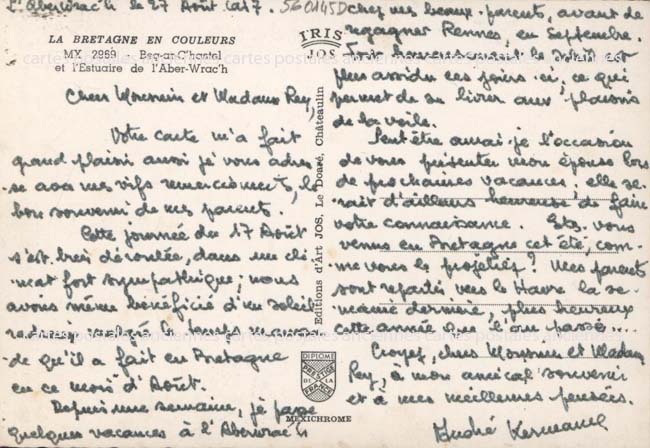 L'Aberwrac'h le 27 Août 1967.
560145D
LA BRETAGNE EN COULEURS
MX 2969 - Beg-ar-C'hastel
et l'Estuaire de l'Aber-Wrac'h
IRIS
JOS
Chers Monsieur et Madame Rey
Votre carte m'a fait
grand plaisir aussi je vous adres-
se avec mes vifs remerciements, le
bon souvenir de mes parents.
Cette journée du 17 Août
s'est bien déroulée, dans un cli-
mat fort sympathique ; nous
avons même bénéficié d'un soleil
radieux malgré le temps maussa-
de qu'il a fait en Bretagne
en ce mois d'Août.
Depuis une semaine, je passe
quelques vacances à l'Aberwrac'h
Editions d'Art JOS, Le Doaré, Châteaulin
DIPLOME
PRESTIGE
DE LA
FRANCE
MEXICHROME
chez mes beaux-parents, avant de
regagner Rennes, en Septembre.
Fort heureusement le soleil est
plus assidu ces jours-ci, ce qui
permet de se livrer aux plaisirs
de la voile.
Peut-être aurai-je l'occasion
de vous présenter mon épouse lors
de prochaines vacances ; elle se-
rait d'ailleurs heureuse de faire
votre connaissance. Etes-vous
venus en Bretagne cet été, com-
me vous le projetiez ? Mes parents
sont repartis vers le Havre la se-
maine dernière, plus heureux
cette année que l'an passé...
Croyez, chers Monsieur et Madame
Rey, à mon amical souvenir
et à mes meilleures pensées.
André Kermanac
cartes postales anciennes cartes postales anciennes cartes postales anciennes